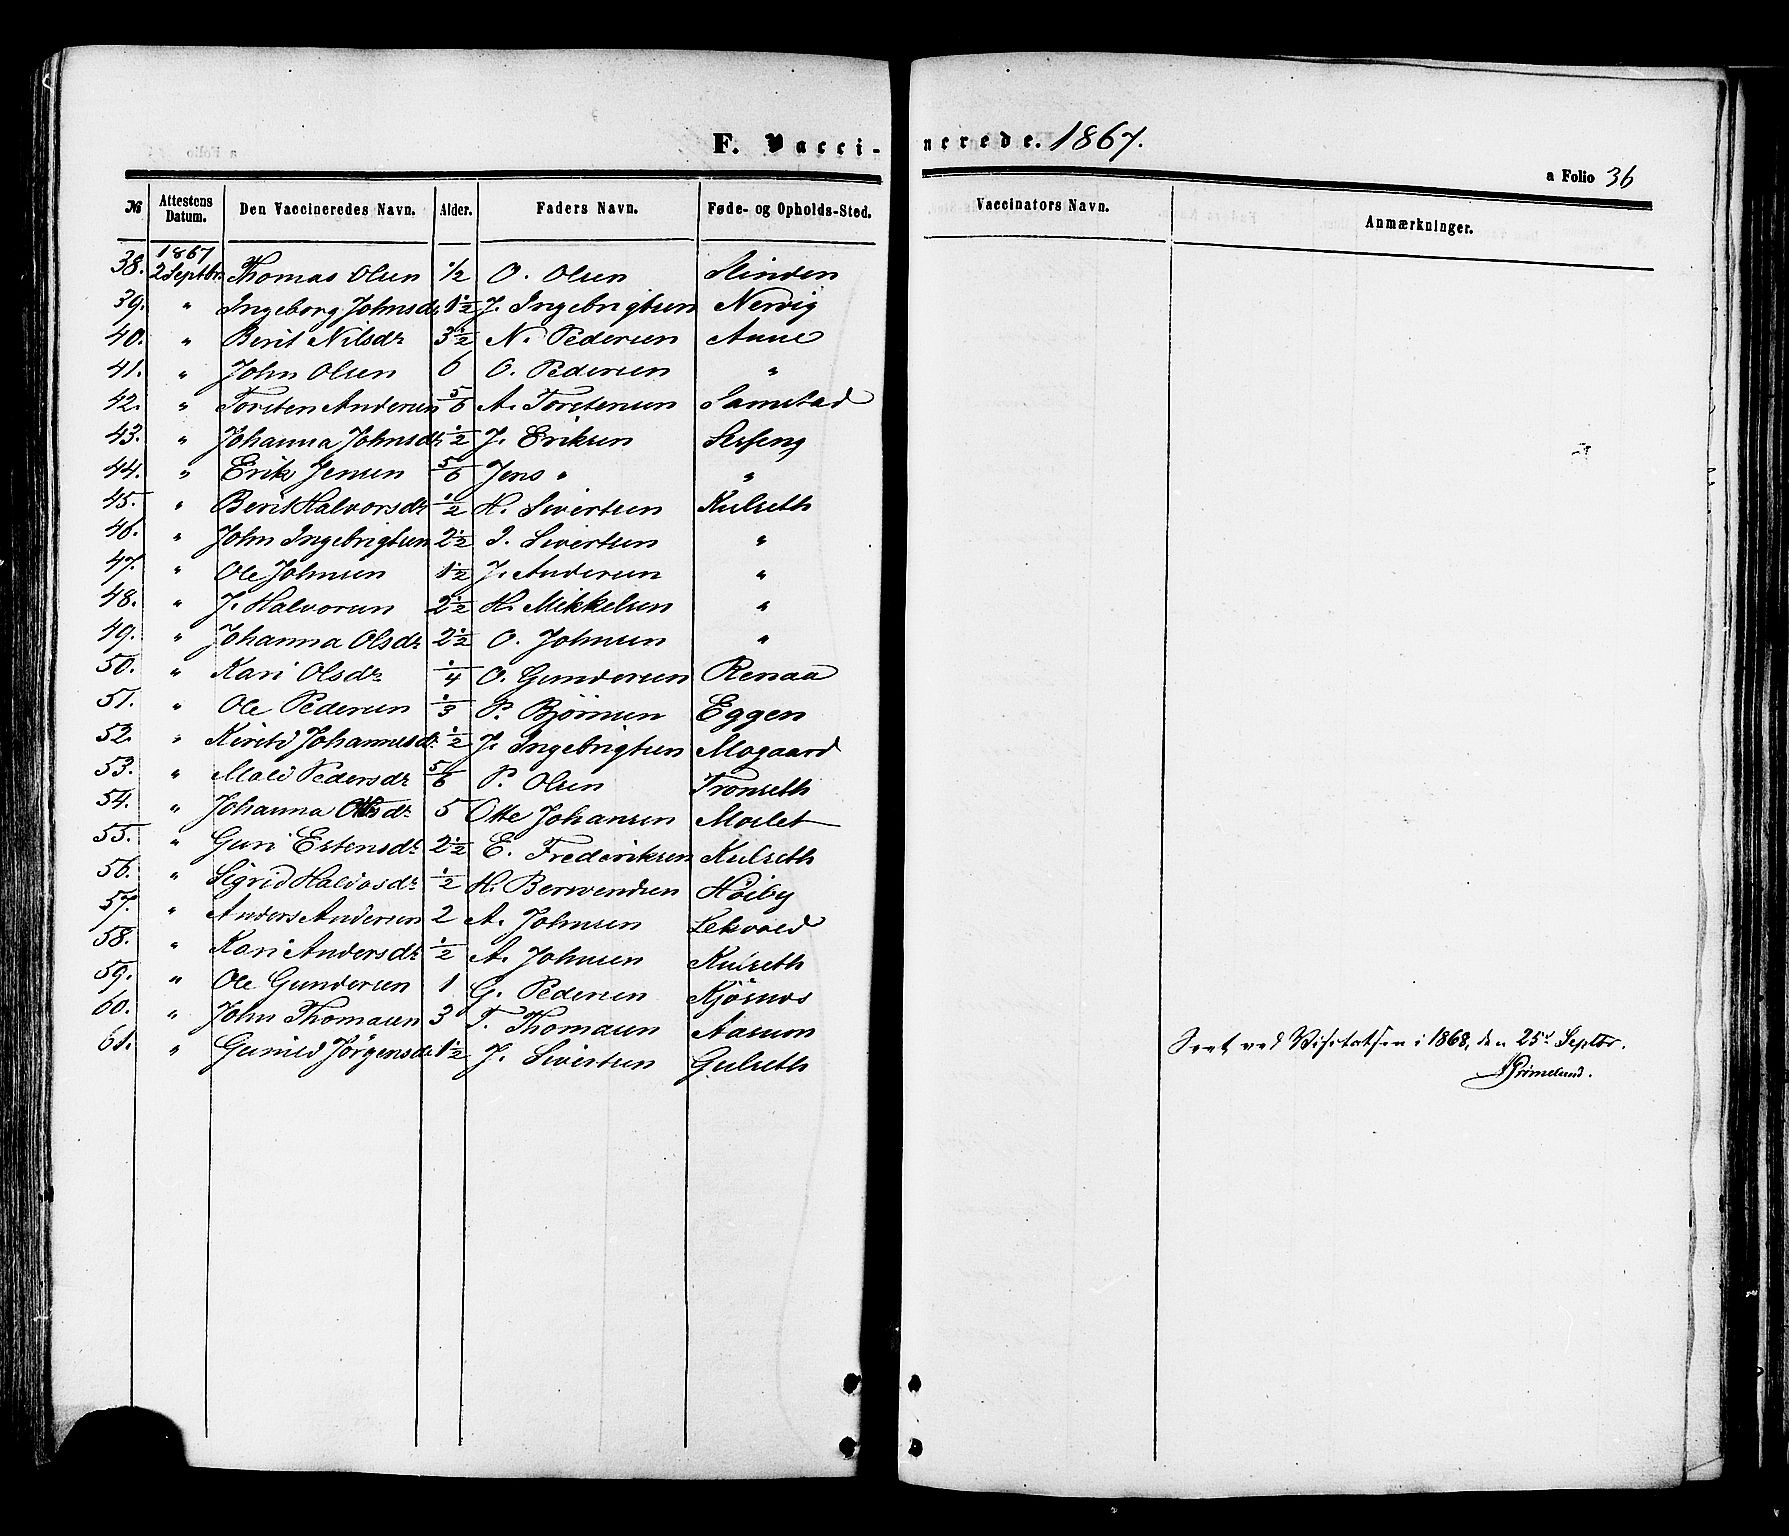 F. Vaccinerede. 1867.
a Folio 36
№ Attestens Datum. Den Vaccineredes Navn. Alder. Faders Navn. Føde- og Opholds-Sted. Vaccinators Navn. Anmærkninger.
1867
38. 2 Septbr. Thomas Olsen 1/2 O. Olsen Slinden
39. " Ingeborg Johnsdr 1 1/2 J. Ingebrigtsen Nervig
40. " Berit Nilsdr 3 1/2 N. Pedersen Aune
41. " John Olsen 6 O. Pedersen "
42. " Torsten Andersen 5/6 A. Torstensen Samstad
43. " Johanna Johnsdr 1/2 J. Eriksen
44. " Erik Jensen 5/6 Jens " "
45. " Berit Halvorsdr 1/2 H. Sivertsen Kulseth
46. " John Ingebrigtsen 2 1/2 I. Sivertsen "
47. " Ole Johnsen 1 1/2 J. Andersen "
48. " J. Halvorsen 2 1/2 H. Mikkelsen "
49. " Johanna Olsdr 2 1/2 O. Johnsen "
50. " Kari Olsdr 1/4 O. Gundersen Renaa
51. " Ole Pedersen 1/3 P. Bjørnsen Eggen
52. " Kirsti Johannesdr. 1/2 J. Ingebrigtsen Mogaard
53. " Mali Pedersdr 5/6 P. Olsen Tronseth
54. " Johanna Ottesdr. 5 Otte Johansen Moslet
55. " Guri Estensdr 2 1/2 E. Frederiksen Kulseth
56. " Sigrid Halvosdr 1/2 H. Berwendsen Høiby
57. " Anders Andersen 2 A. Johnsen Lekvold
58. " Kari Andersdr 1/2 A. Johnsen Kulseth
59. " Ole Gundersen 1 G. Pedersen Kjøsnes
60. " John Thomasen 3 T. Thomasen Aasum
61. " Gunild Jørgensdr 1 1/2 J. Sivertsen Gulseth
Seet ved Visitatsen i 1868, den 25d Septbr.